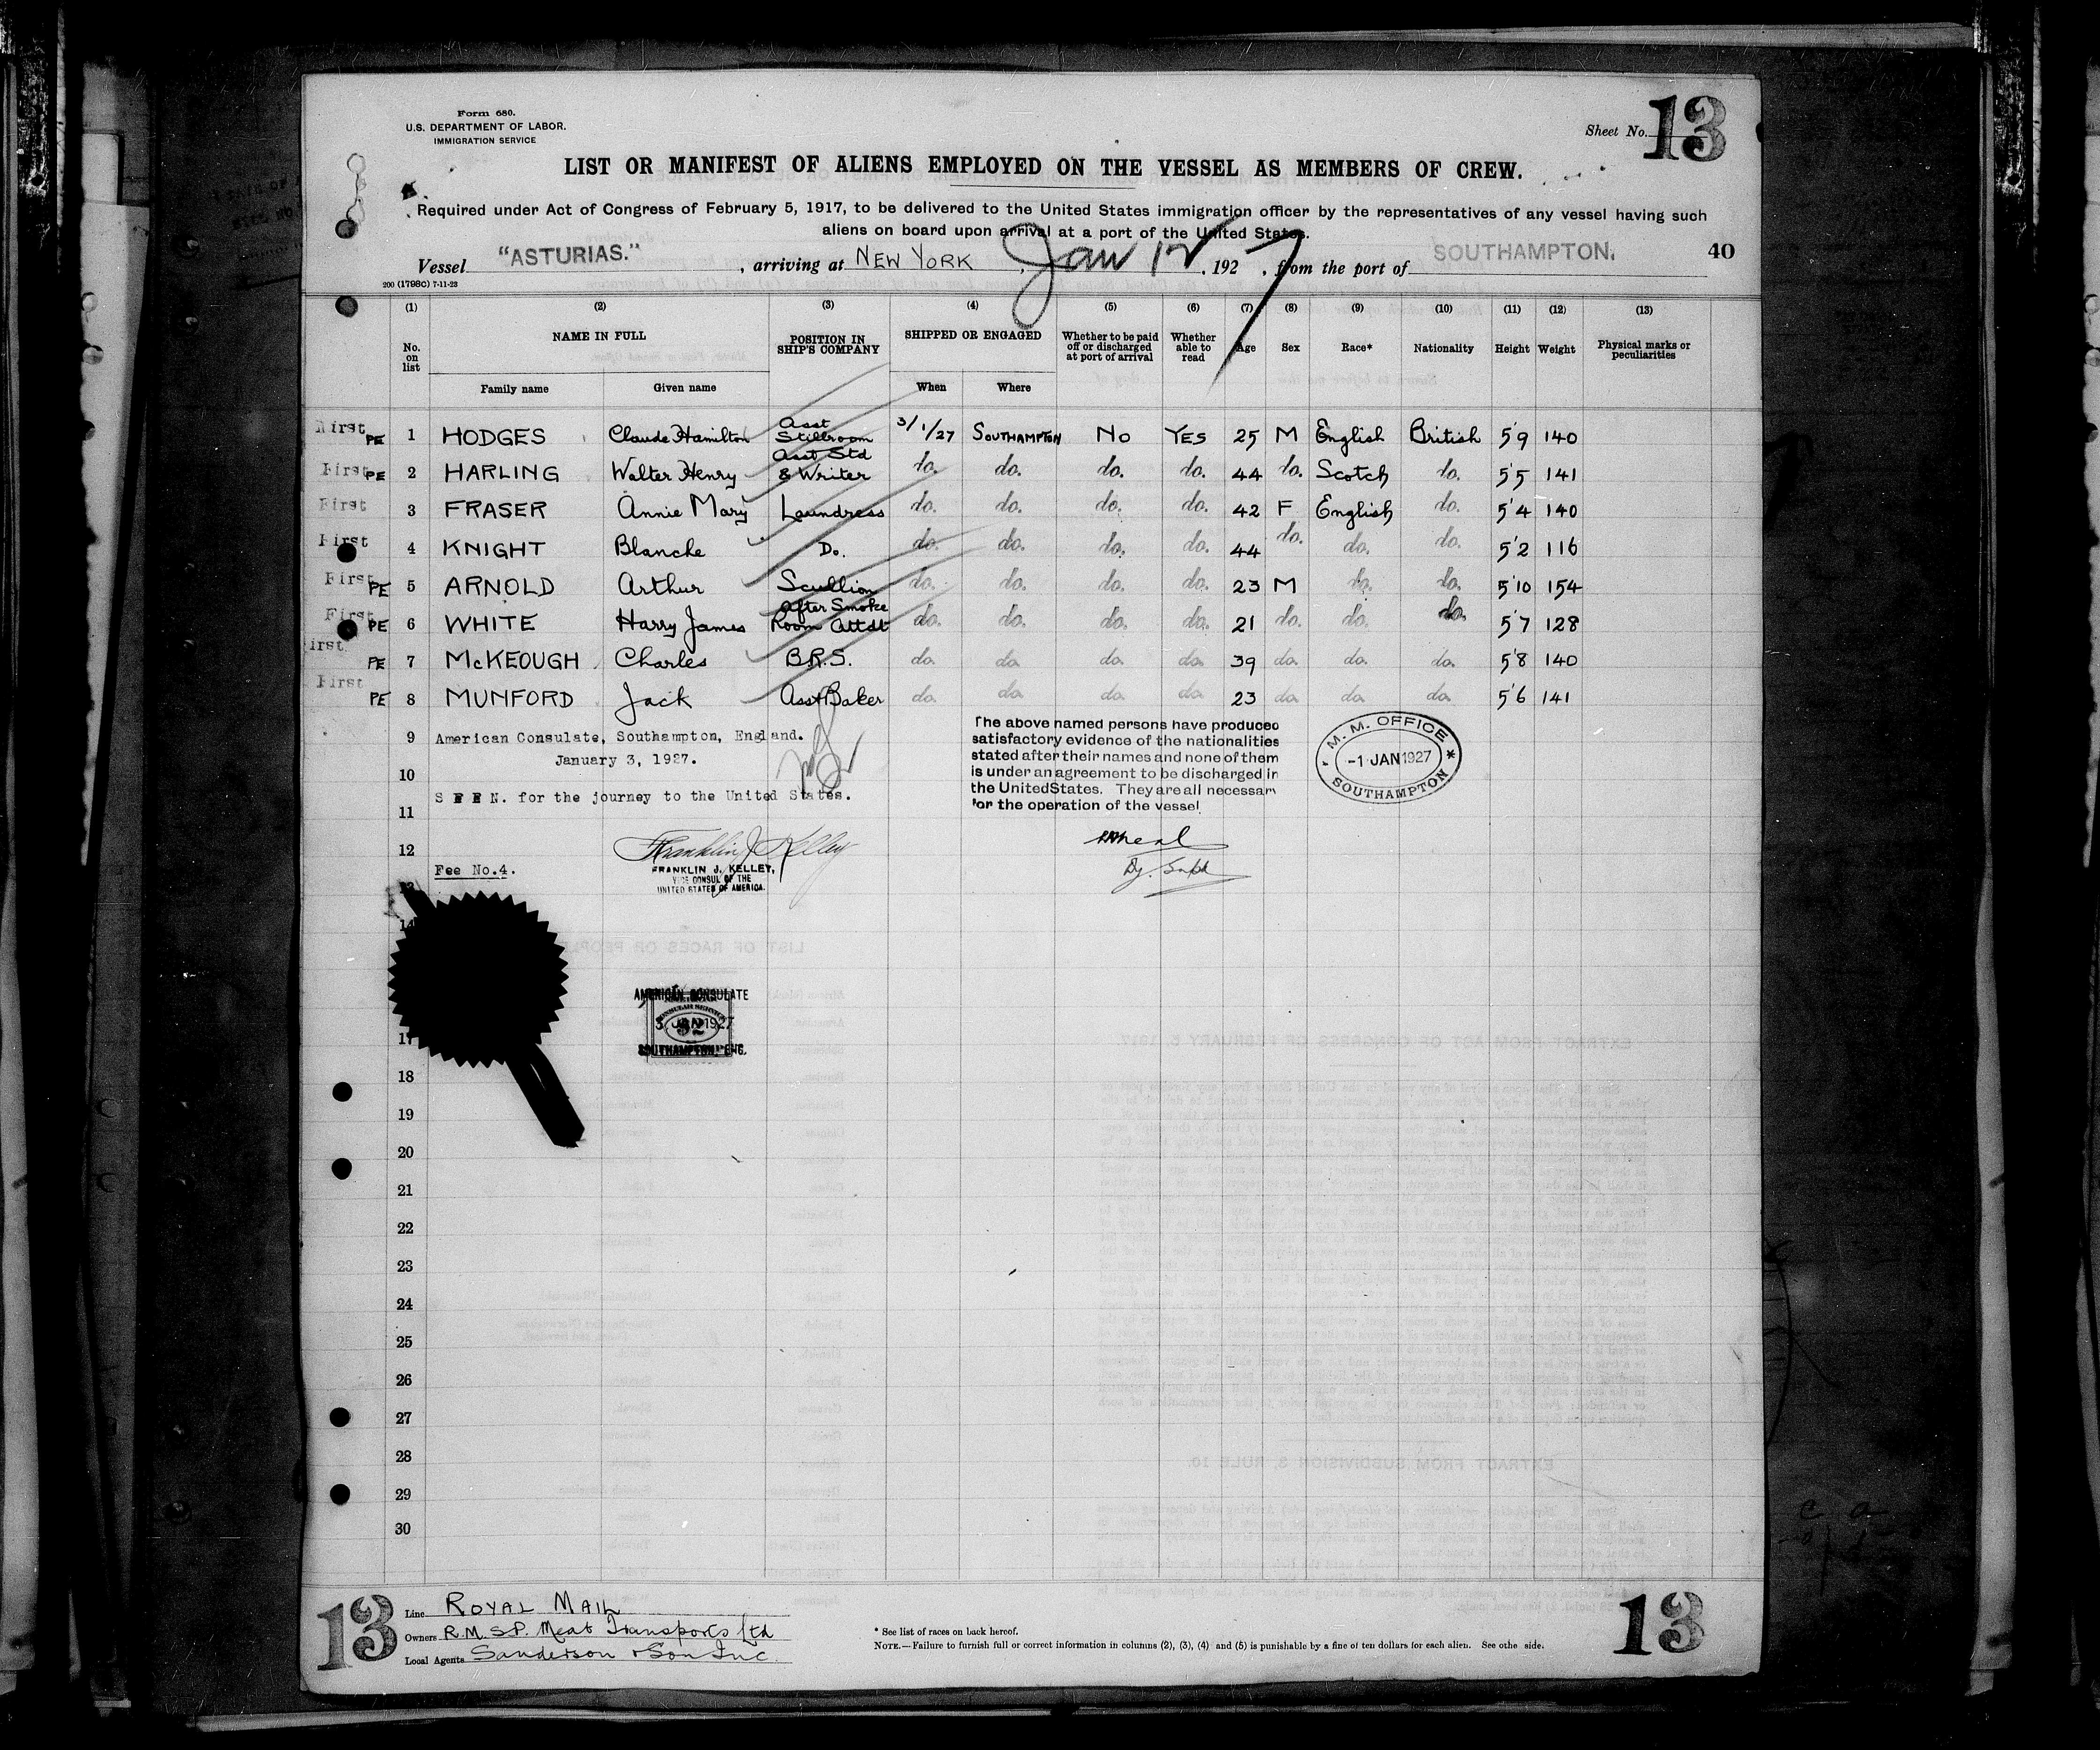 Form 680.
U.S. DEPARTMENT OF LABOR.
IMMIGRATION SERVICE
Sheet No. 13
LIST OR MANIFEST OF ALIENS EMPLOYED ON THE VESSEL AS MEMBERS OF CREW.
Required under Act of Congress of February 5, 1917, to be delivered to the United States immigration officer by the representatives of any vessel having such
aliens on board upon arrival at a port of the United States.
Vessel "ASTURIAS." , arriving at NEW YORK , Jan 12 , 1927 , from the port of SOUTHAMPTON. 40
200 (1798C) 7-11-23
(1) (2) (3) (4) (5) (6) (7) (8) (9) (10) (11) (12) (13)
No. on list NAME IN FULL POSITION IN SHIP'S COMPANY SHIPPED OR ENGAGED Whether to be paid off or discharged at port of arrival Whether able to read Age Sex Race* Nationality Height Weight Physical marks or peculiarities
Family name Given name When Where
First PE 1 HODGES Claude Hamilton Asst Stillroom 3/1/27 SOUTHAMPTON No YES 25 M English British 5'9 140
First PE 2 HARLING Walter Henry Asst Std & Writer do. do. do. do. 44 do. Scotch do. 5'5 141
First 3 FRASER Annie Mary Laundress do. do. do. do. 42 F English do. 5'4 140
First 4 KNIGHT Blanche Do. do. do. do. do. 44 do. do. do. 5'2 116
First PE 5 ARNOLD Arthur Scullion do. do. do. do. 23 M do. do. 5'10 154
First PE 6 WHITE Harry James After Smoke Room Attdt do. do. do. do. 21 do. do. do. 5'7 128
First PE 7 McKEOUGH Charles B.R.S. do. do do do 39 do. do. do. 5'8 140
First PE 8 MUNFORD Jack Asst Baker do. do do do 23 do do do 5'6 141
9 American Consulate, Southampton, England.
January 3, 1927.
10
S E E N. for the journey to the United States.
11
The above named persons have produced
satisfactory evidence of the nationalities
stated after their names and none of them
is under an agreement to be discharged in
the United States. They are all necessary
for the operation of the vessel
M. M. OFFICE
-1 JAN 1927
SOUTHAMPTON
12
Franklin J Kelley
Fee No.4.
FRANKLIN J. KELLEY,
VICE CONSUL OF THE
UNITED STATES OF AMERICA.
13
14
AMERICAN CONSULATE
3 JAN 1927
SOUTHAMPTON, ENG.
17
18
19
20
21
22
23
24
25
26
27
28
29
30
13
Line ROYAL MAIL
Owners R.M.S.P. Meat Transports Ltd
Local Agents Sanderson & Son Inc.
* See list of races on back hereof.
NOTE.—Failure to furnish full or correct information in columns (2), (3), (4) and (5) is punishable by a fine of ten dollars for each alien. See othe side.
13